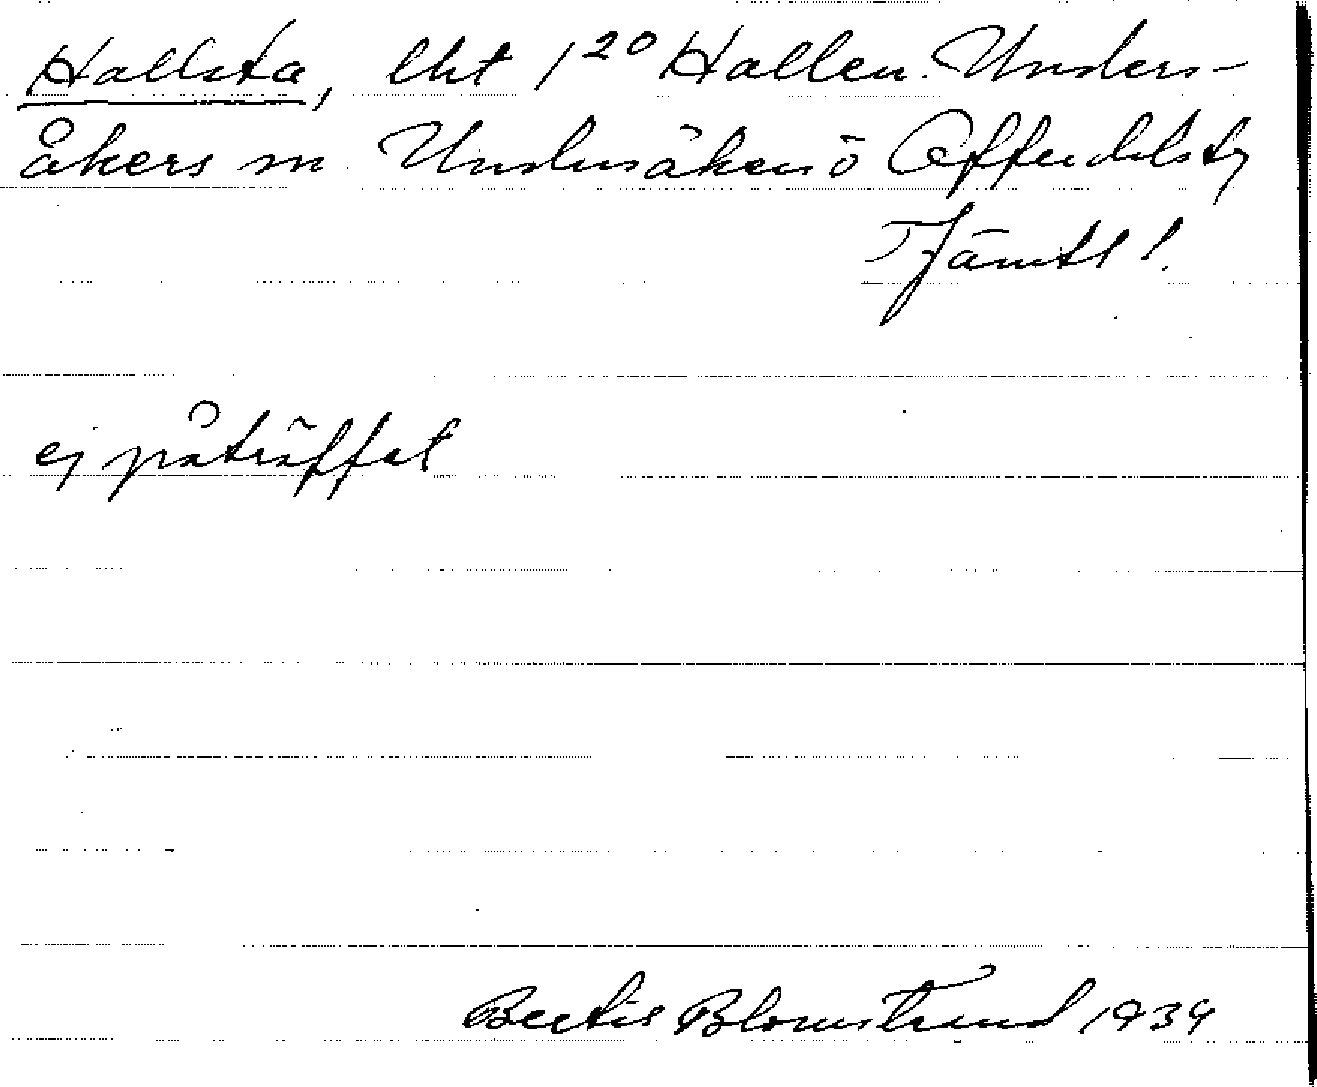 Hallsta, lht 1²⁰ Hallen. Unders-
åkers sn Undersåkers ö Offerdals tg
Jämtl l.
ej påträffat
Bertil Blomstrand 1939